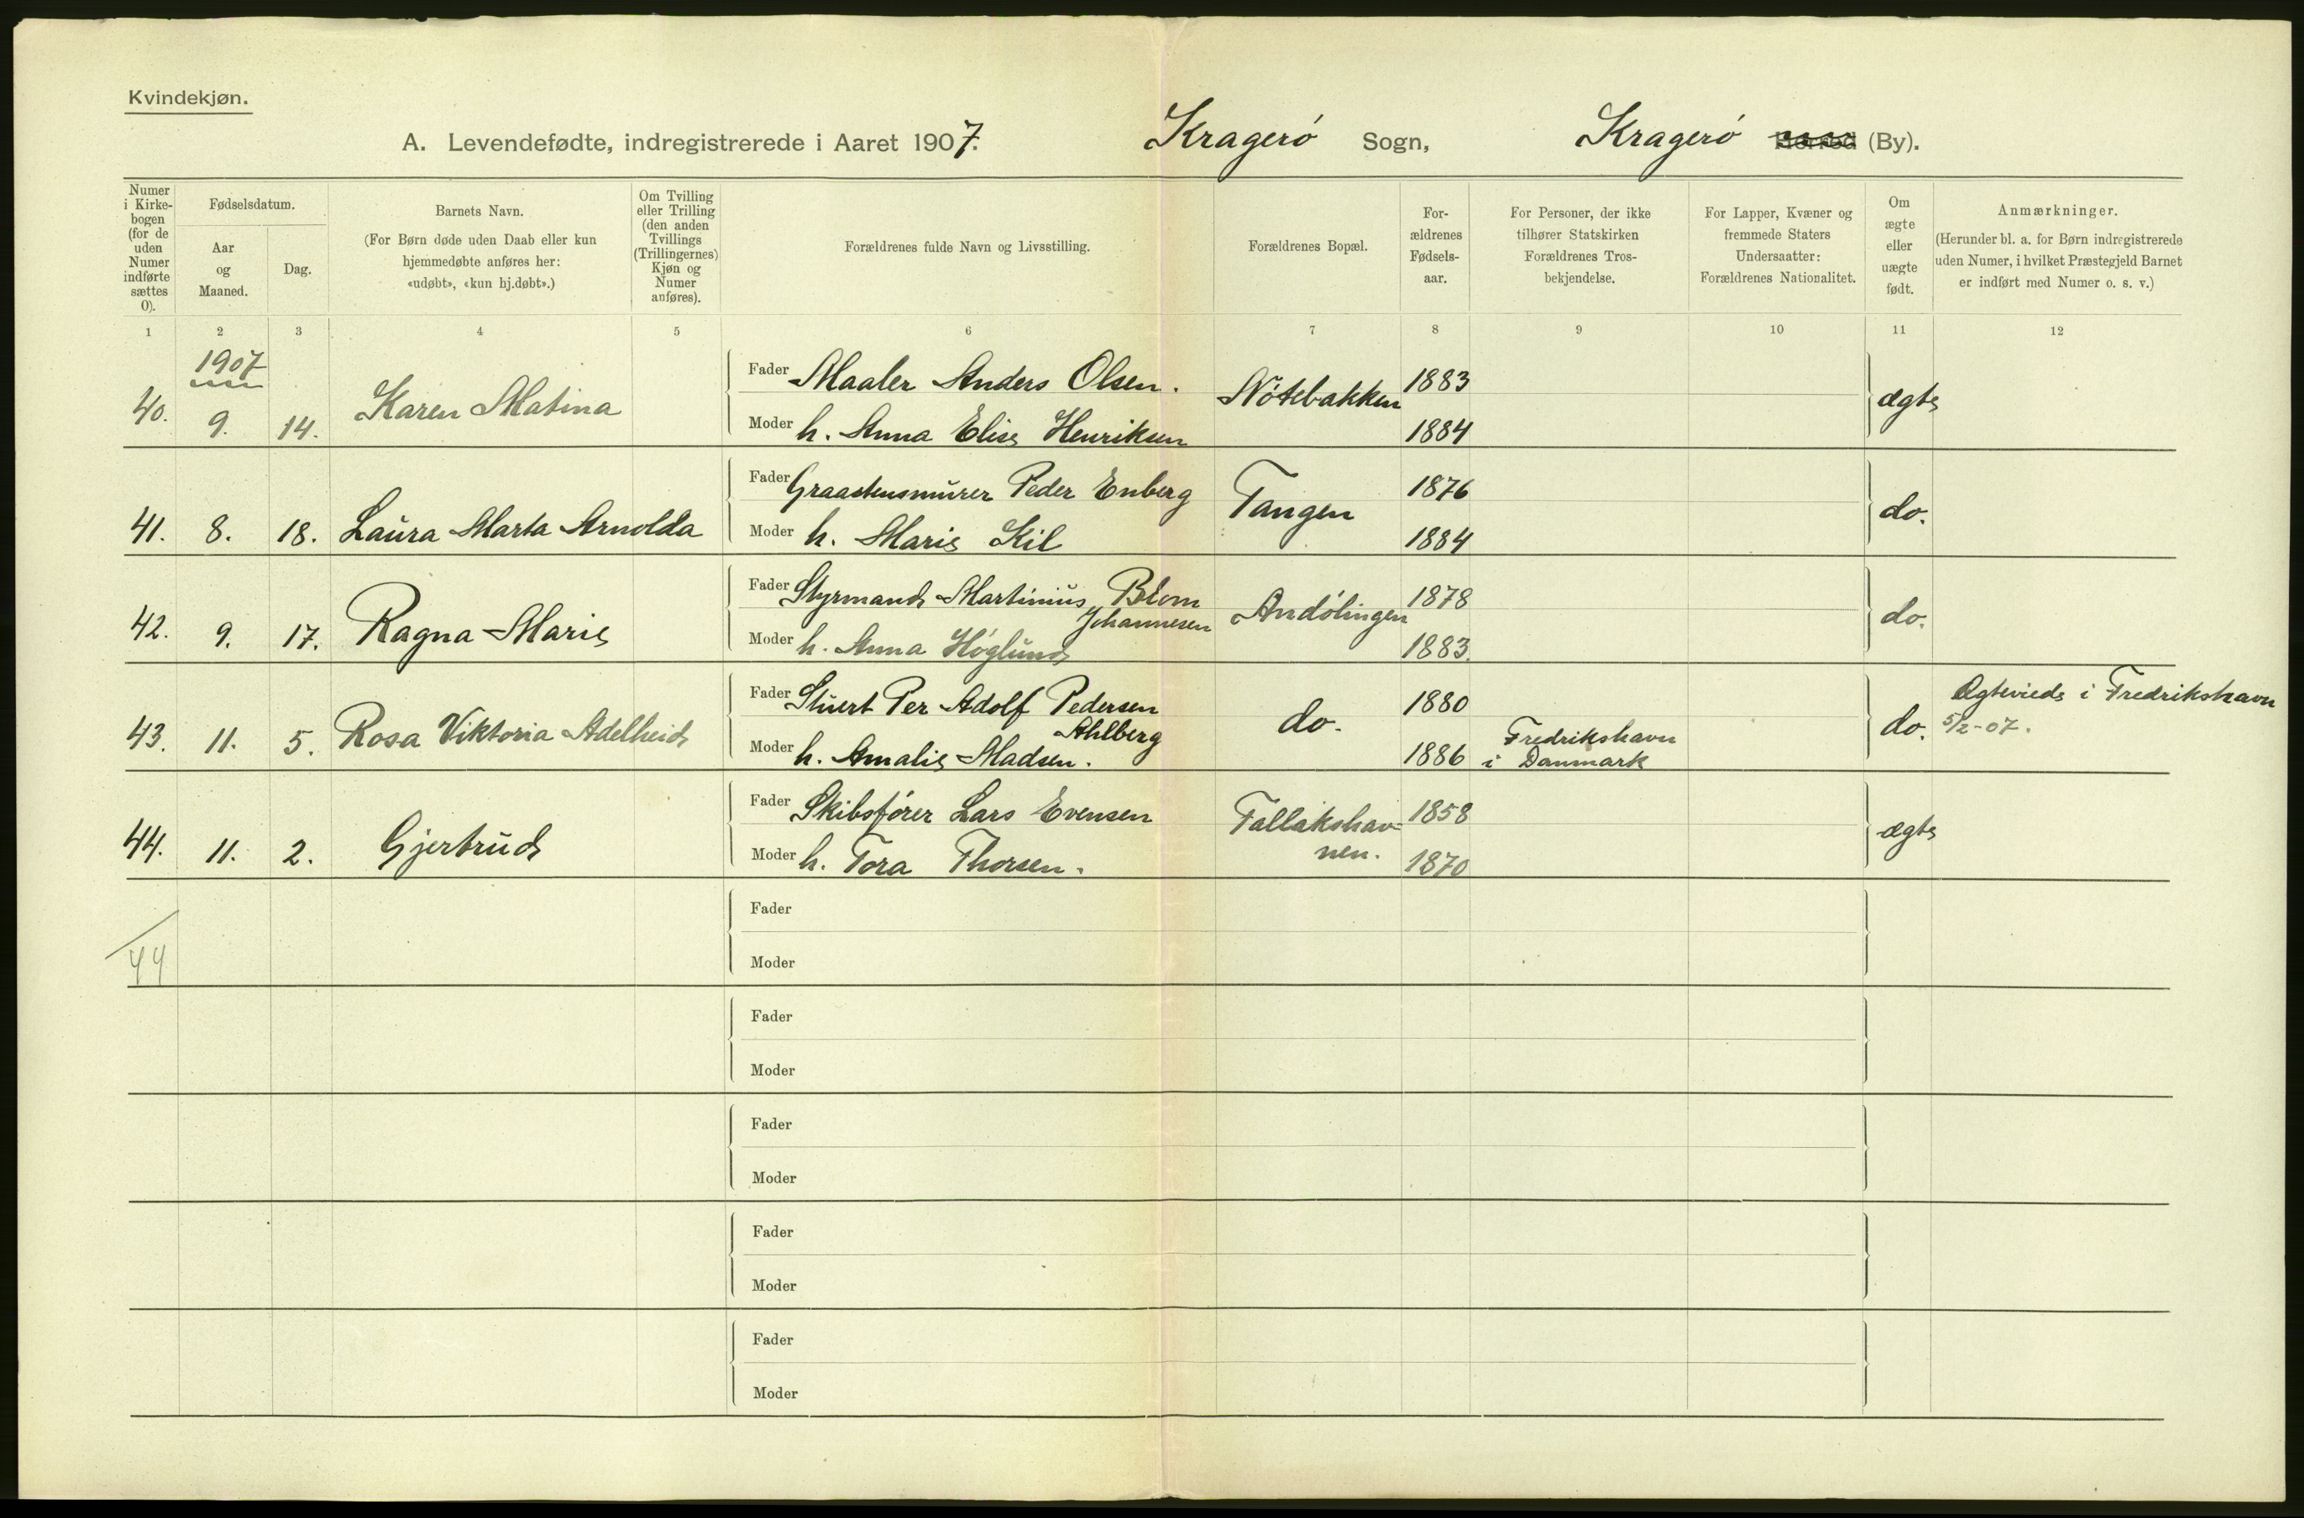 Kvindekjøn.
A. Levendefødte, indregistrerede i Aaret 1907. Kragerø Sogn, Kragerø Herred (By).
Numer i Kirkebogen (for de uden Numer indførte sættes 0).
Fødselsdatum.
Aar og Maaned.
Dag.
Barnets Navn.
(For Børn døde uden Daab eller kun hjemmedøbte anføres her: «udøbt», «kun hj.døbt».)
Om Tvilling eller Trilling (den anden Tvillings (Trillingernes) Kjøn og Numer anføres).
Forældrenes fulde Navn og Livsstilling.
Forældrenes Bopæl.
For-ældrenes Fødsels-aar.
For Personer, der ikke tilhører Statskirken Forældrenes Tros-bekjendelse.
For Lapper, Kvæner og fremmede Staters Undersaatter: Forældrenes Nationalitet.
Om ægte eller uægte født.
Anmærkninger.
(Herunder bl. a. for Børn indregistrerede uden Numer, i hvilket Præstegjeld Barnet er indført med Numer o. s. v.)
1 2 3 4 5 6 7 8 9 10 11 12
1907
40. 9. 14. Karen Matina
Fader Maaler Anders Olsen. Nótebakken 1883 ægte
Moder h. Anna Elise Henriksen 1884
41. 8. 18. Laura Marta Arnolda
Fader Graastensmurer Peder Enberg Tangen 1876 do.
Moder h. Marie Kil 1884
42. 9. 17. Ragna Marie
Fader Styrmand Martinius Blom Johannesen Andólingen 1878 do.
Moder h. Anna Höglund 1883.
43. 11. 5. Rosa Viktoria Adelheid
Fader Stuert Per Adolf Pedersen Ahlberg do. 1880 do. Ægteviede i Fredrikshavn 5/2-07.
Moder h. Amalie Madsen. 1886 Fredrikshavn i Danmark
44. 11. 2. Gjertrud
Fader Skibsfører Lars Evensen Tallakshav=nen. 1858 ægte
Moder h. Tora Thorsen. 1870
44
Fader
Moder
Fader
Moder
Fader
Moder
Fader
Moder
Fader
Moder